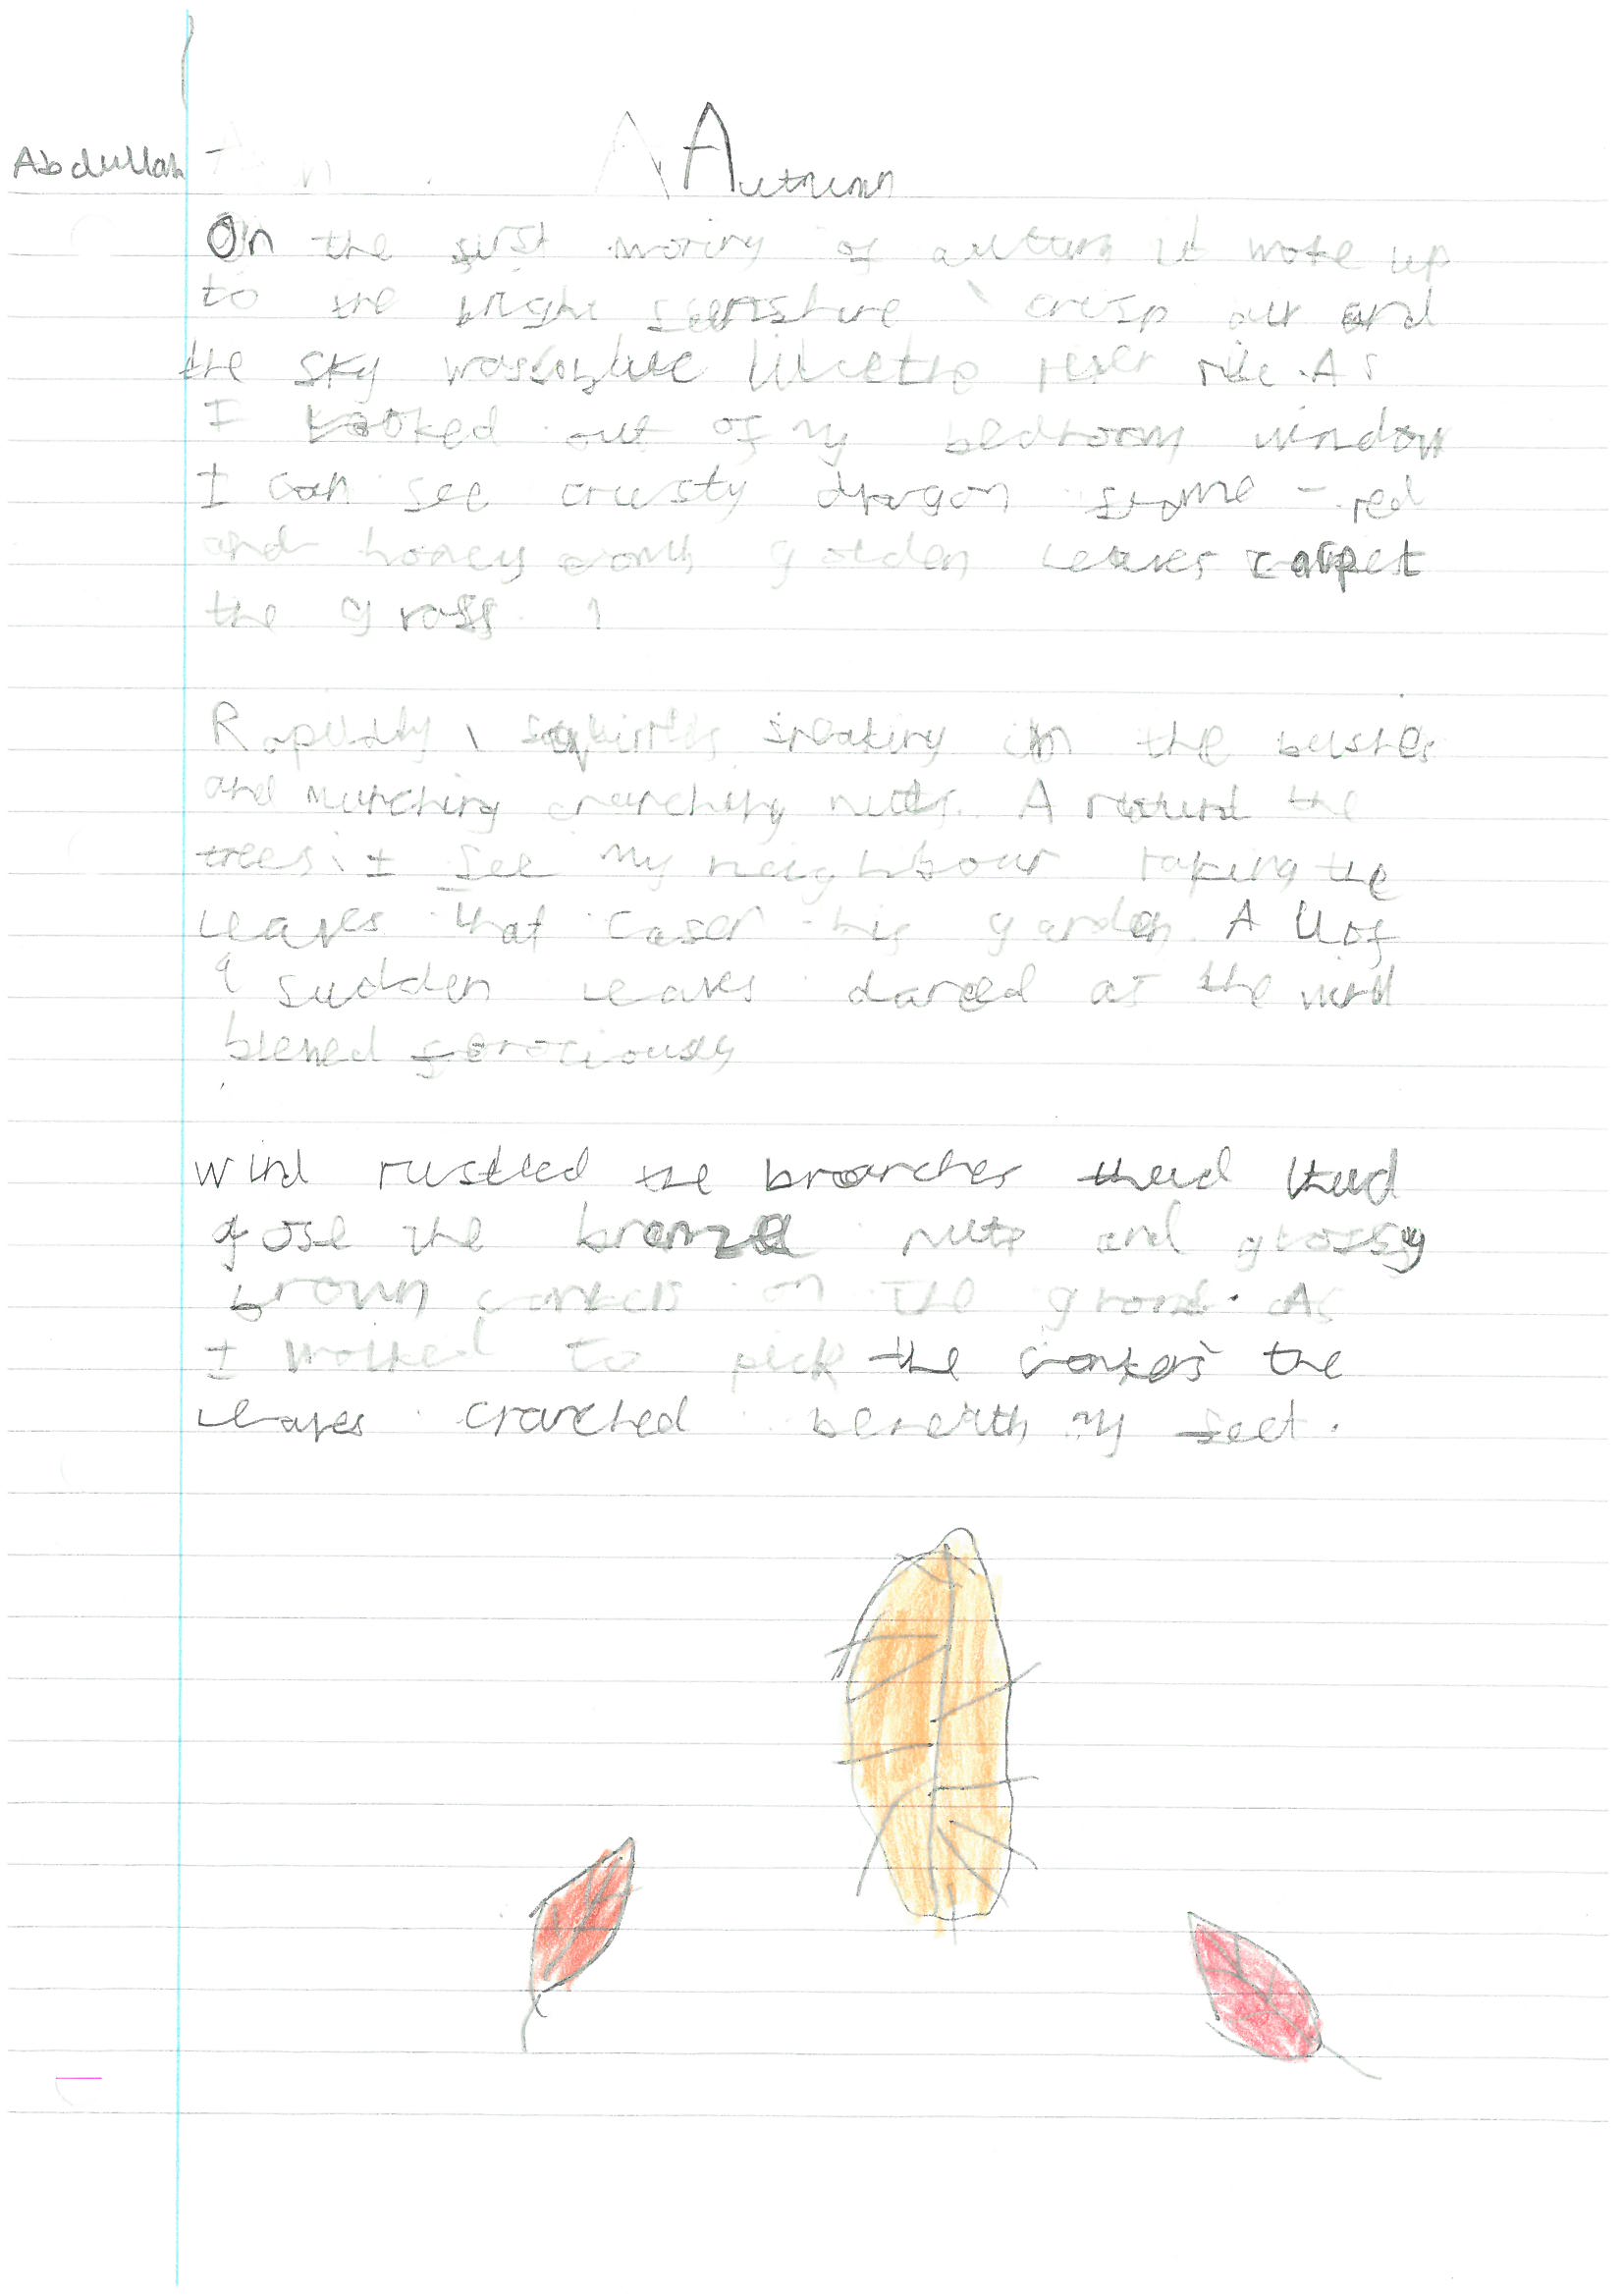 Abdullah
Autumn
On the first moring of auttum it woke up
to the bright sunshine, crisp air and
the sky was blue like the river nile. As
I looked out of my bedroom window
I can see crusty dragon
red
and honey comb golden leaves carpet
the grass.
Rapidly, sneaking in the bushes
and munching nuts. A the
trees, I see my neighbour raking the
leaves that his garden. All of
a sudden leaves danced as the wind
blewed ferociously
wind rustled the branches thud thud
gose the bronze nuts and glossy
brown conkers on the ground. As
I walked to pick the conkers the
leaves crunched my feet.